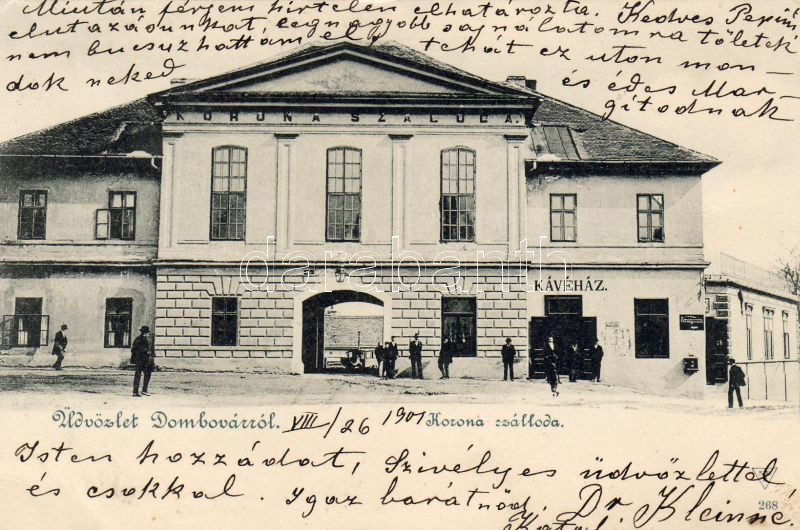 Miután férjem hirtelen elhatározta Kedves Pepim
elutazásunkat, legnagyobb sajnálatomra tőletek
nem bucsuzhattam el, tehát ez uton mon-
dok neked és édes Mar-
gitodnak
KORONA SZÁLLODA.
KÁVÉHÁZ.
darabanth
Üdvözlet Dombovárról. VIII/26 1901 Korona szálloda.
Isten hozzádat, Szivélyes üdvözlettel
és csokkal. Igaz barátnőd. Dr. Kleinné
268